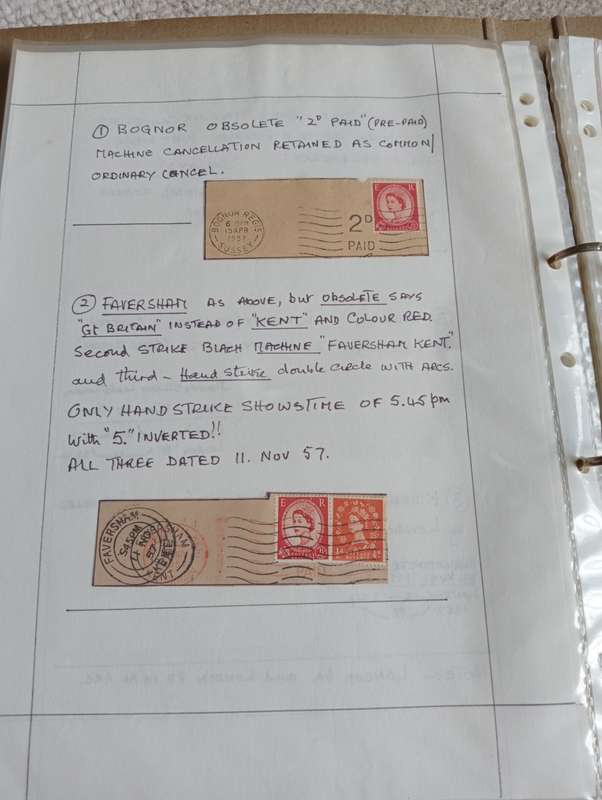 ① BOGNOR OBSOLETE "2D PAID" (PRE-PAID)
MACHINE CANCELLATION RETAINED AS COMMON/
ORDINARY CANCEL.
BOGNOR REGIS
15 APR
1957
SUSSEX
2D
PAID
E R
② FAVERSHAM AS ABOVE, but OBSOLETE SAYS
"Gt BRITAIN" INSTEAD OF "KENT" AND COLOUR RED.
Second STRIKE BLACK MACHINE "FAVERSHAM KENT."
and third - Hand Strike double circle WITH ARCS.
ONLY HAND STRIKE SHOWS TIME OF 5.45 pm
with "5." INVERTED!!
ALL THREE DATED 11. NOV 57.
FAVERSHAM
E R